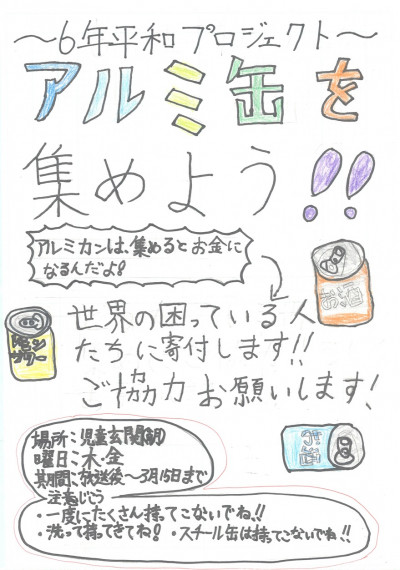 ～6年平和プロジェクト～
アルミ缶を
集めよう!!
アルミカンは、集めるとお金に
なるんだよ!
お酒
世界の困っている人
たちに寄付します!!
レモン
サワー
ご協力お願いします!
缶
場所:児童玄関(朝)
曜日:木・金
期間:放送後～3月15日まで
注意じこう
・一度にたくさん持ってこないでね!!
・洗って持ってきてね! ・スチール缶は持ってこないでね!!